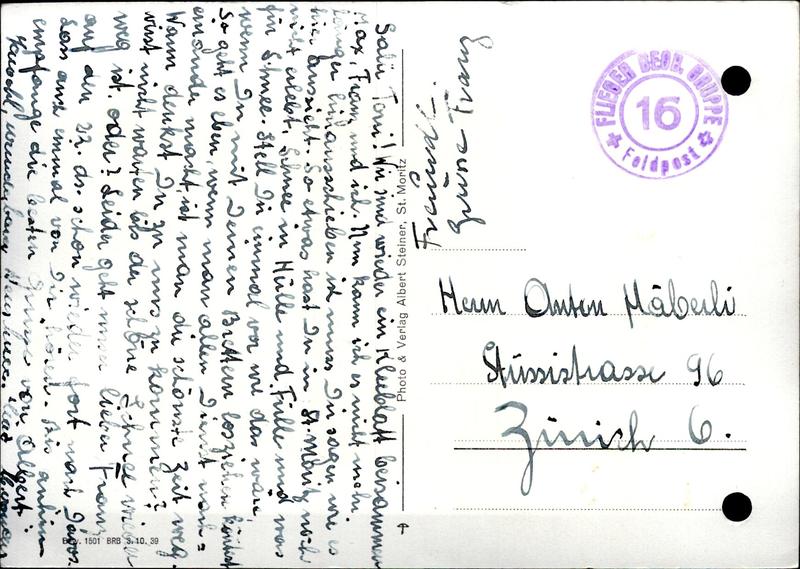 Salü Toni! Wir sind wieder ein Kleeblatt beisammen
Max, Franz und ich. Nun kann ich es nicht mehr
länger hinausschieben ich muss Dir sagen wie es
hier aussieht. So etwas hast Du in St. Moritz noch
nicht erlebt. Schnee in Hülle und Fülle und was
für Schnee. Stell Dir einmal vor wie das wäre
wenn Du mit Deinen Brettern losziehen könntest
So geht es eben, wenn man allen Dienst nach=
einander macht, ist man die schönste Zeit weg.
Wann denkst Du zu uns zu kommen?
wirst nicht warten bis der schöne Schnee wieder
weg ist, oder? Leider geht unser lieber Franz
auf den 22. ds. schon wieder fort nach Davos.
Lass auch einmal von Dir hören. Bis anhin
empfange die besten Grüsse von Albert.
Photo & Verlag Albert Steiner, St. Moritz
1501 BRB 3.10.39
FLIEGER BEOB. GRUPPE
16
Feldpost
Franz
Herrn Anton Häberli
Stüssistrasse 96
Zürich 6.